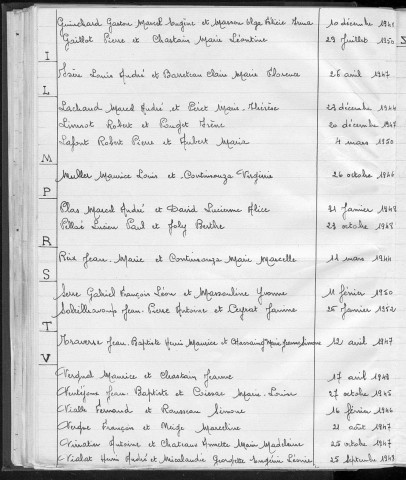 Guinchard Gaston Marcel Eugène et Masson Olga Alice Irma 10 décembre 1941
Gaillot Pierre et Chastain Marie Léontine 29 Juillet 1950
I
Louis André et Claire Marie Florence 26 avril 1947
L
Lachaud Marcel André et Marie-Thérèse 23 décembre 1944
Robert et Pouget Irène 20 décembre 1947
Lafont Robert Pierre et Aubert Maria 4 mars 1950
M
Muller Maurice Louis et Continsouza Virginie 26 octobre 1946
P
Plas Marcel André et David Lucienne Alice 31 Janvier 1948
Lucien Paul et Joly Berthe 23 octobre 1948
R
Rue Jean Marie et Continsouza Marie Marcelle 11 mars 1944
S
Serre Gabriel François Léon et Yvonne 11 février 1950
Jean-Pierre Antoine et Ceyrat Jeanne 25 Janvier 1952
T
Traverse Jean-Baptiste Henri Maurice et Marie Jeanne Simone 12 avril 1947
V
Vergnet Maurice et Chastain Jeanne 17 avril 1948
Jean Baptiste et Marie-Louise 27 octobre 1945
Vialle Fernand et Rousseau Simone 16 février 1946
Vergne François et Marceline 21 août 1947
Antoine et Annette Marie Madeleine 25 octobre 1947
Vialat Henri André et Georgette Eugénie Léonie 25 septembre 1948